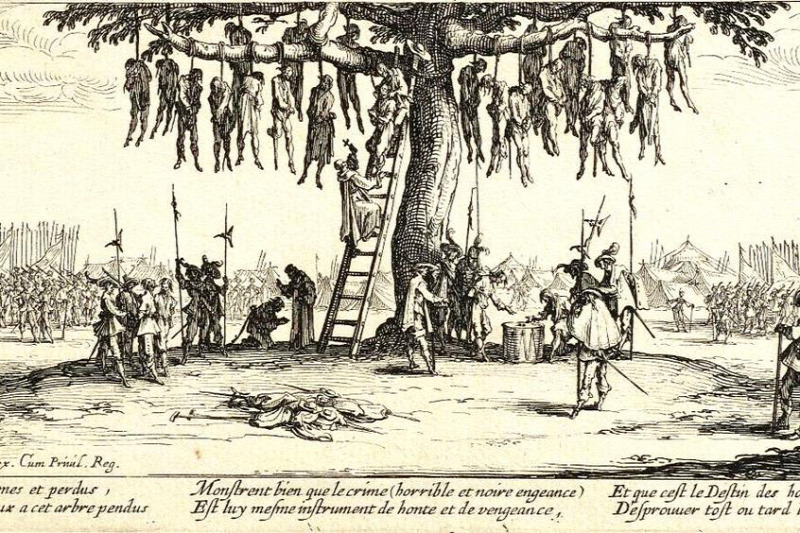 ex. Cum Priuil. Reg.
nes et perdus ,
ux a cet arbre pendus
Monſtrent bien que le crime (horrible et noire engeance)
Eſt luy meſme inſtrument de honte et de vengeance ,
Et que ceſt le Deſtin des ho
Deſprouuer toſt ou tard l